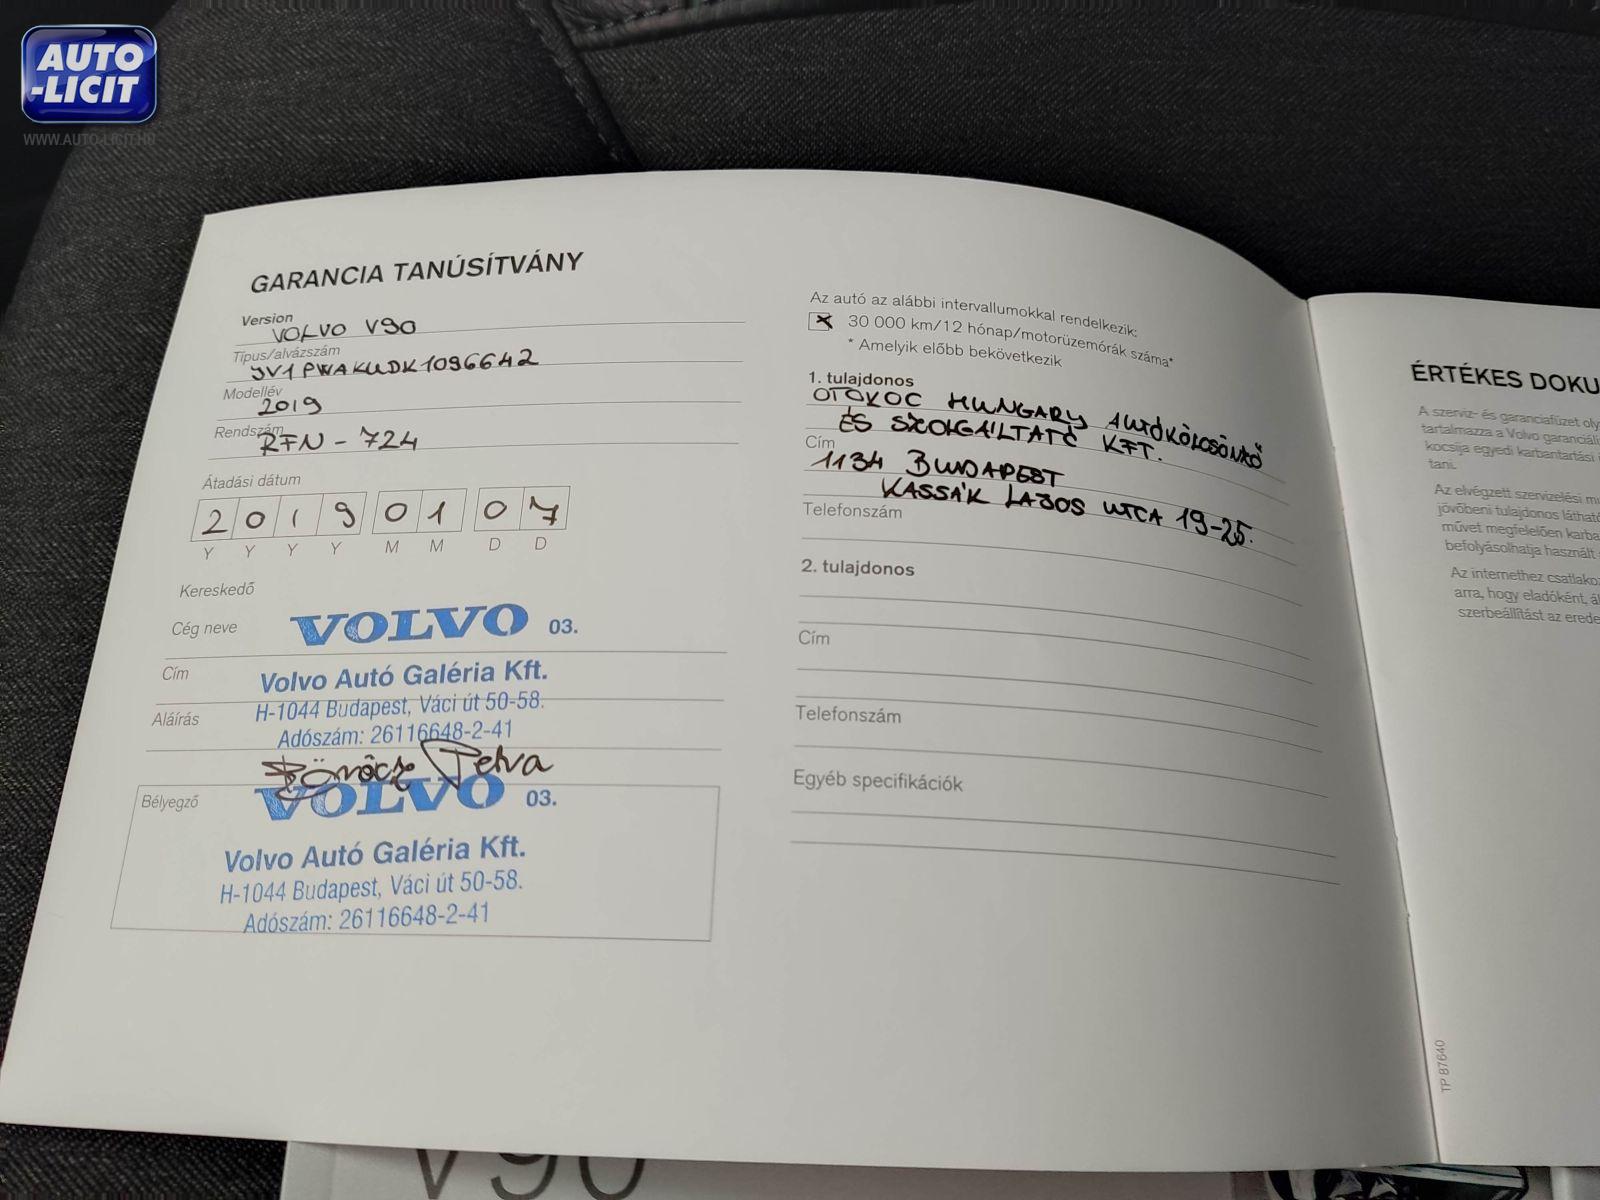 AUTO
-LICIT
WWW.AUTO-LICIT.HU
GARANCIA TANÚSÍTVÁNY
Version
VOLVO V90
Típus/alvázszám
YV1PWAKUDK1096642
Modellév
2019
Rendszám
RFN - 724
Átadási dátum
2 0 1 9 0 1 0 7
Y Y Y Y M M D D
Kereskedő
Cég neve
VOLVO 03.
Cím
Volvo Autó Galéria Kft.
H-1044 Budapest, Váci út 50-58.
Aláírás
Adószám: 26116648-2-41
Petra
Bélyegző
VOLVO 03.
Volvo Autó Galéria Kft.
H-1044 Budapest, Váci út 50-58.
Adószám: 26116648-2-41
Az autó az alábbi intervallumokkal rendelkezik:
x 30 000 km/12 hónap/motorüzemórák száma*
* Amelyik előbb bekövetkezik
1. tulajdonos
OTOKOC HUNGARY AUTÓKÖLCSÖNZŐ
ÉS SZOLGÁLTATÓ KFT.
Cím
1134 BUDAPEST
KASSÁK LAJOS UTCA 19-25.
Telefonszám
2. tulajdonos
Cím
Telefonszám
Egyéb specifikációk
ÉRTÉKES DOKU
A szerviz- és garanciafüzet oly
tartalmazza a Volvo garanciáli
kocsija egyedi karbantartási
tani.
Az elvégzett szervizelési mu
jövőbeni tulajdonos látható
művet megfelelően karba
befolyásolhatja használt
Az internethez csatlako
arra, hogy eladóként, ál
szerbeállítást az erede
TP 87640
V90